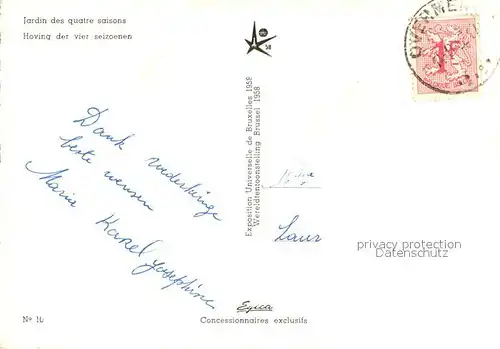 Jardin des quatre saisons
Hoving der vier seizoenen
58
1F
Dank wederkerige
beste wensen
Maria Karel Josephine
Exposition Universelle de Bruxelles 1958
Wereldtentoonstelling Brussel 1958
Laur
privacy protection
Datenschutz
Egica
Nº 10
Concessionnaires exclusifs